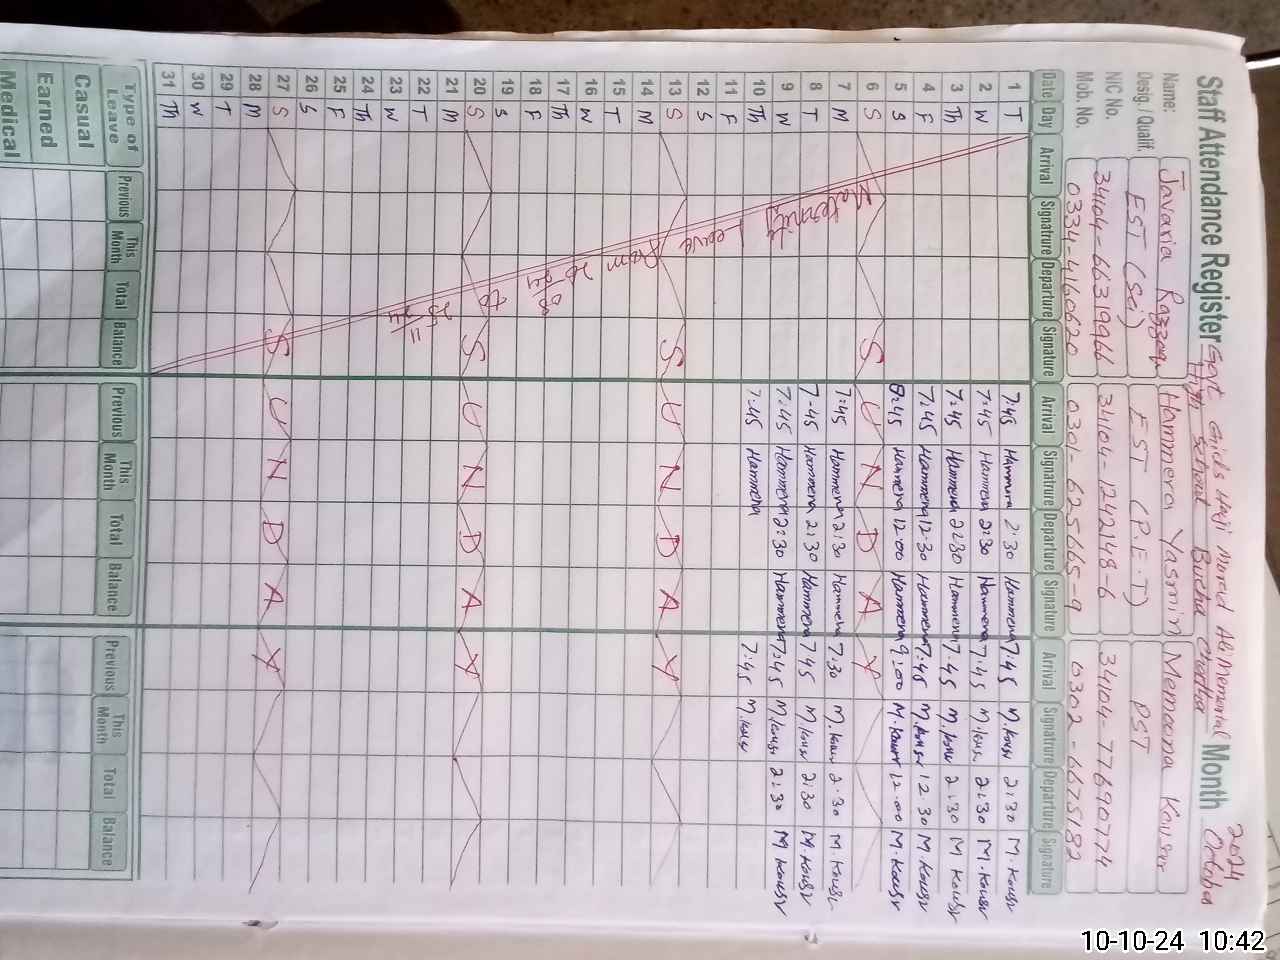 Staff Attendance Register Govt. Girls Haji Murad Ali Memorial Month 2024 October
High School Bucha Chattha
Name: Javaria Razzaq Hammera Yasmin Memoona Kousar
Desig. / Qualif. EST (Sci) EST (P.E.T) PST
NIC No. 34104-6639966 34104-1242148-6 34104-77690774
Mob. No. 0334-4160620 0301-625665-9 0302-6675182
Date Day Arrival Signatrure Departure Signature Arrival Signatrure Departure Signature Arrival Signatrure Departure Signature
1 T 7:45 Hammera 2:30 Hammera 7:45 M.Kousr 2:30 M.Kousr
2 W 7:45 Hammera 2:30 Hammera 7:45 M.Kousr 2:30 M.Kousr
3 Th 7:45 Hammera 2:30 Hammera 7:45 M.Kousr 2:30 M Kousr
4 F 7:45 Hammera 12:30 Hammera 7:45 M.Kousr 12:30 M Kousr
5 S 8:45 Hammera 12:00 Hammera 9:00 M.Kousr 12:00 M.Kousr
6 S S U N D A Y
7 M 7:45 Hammera 2:30 Hammera 7:30 M.Kousr 2:30 M.Kousr
8 T 7:45 Hammera 2:30 Hammera 7:45 M.Kousr 2:30 M.Kousr
9 W 7:45 Hammera 2:30 Hammera 7:45 M.Kousr 2:30 M Kousr
10 Th 7:45 Hammera 7:45 M.Kousr
11 F
12 S
13 S S U N D A Y
14 M
15 T
16 W
17 Th
18 F
19 S
20 S S U N D A Y
21 M
22 T
23 W
24 Th
25 F
26 S
27 S S U N D A Y
28 M
29 T
30 W
31 Th
Maternity Leave from 26 08 24 to 25 11 24
Type of Leave Previous This Month Total Balance Previous This Month Total Balance Previous This Month Total Balance
Casual
Earned
Medical
10-10-24 10:42